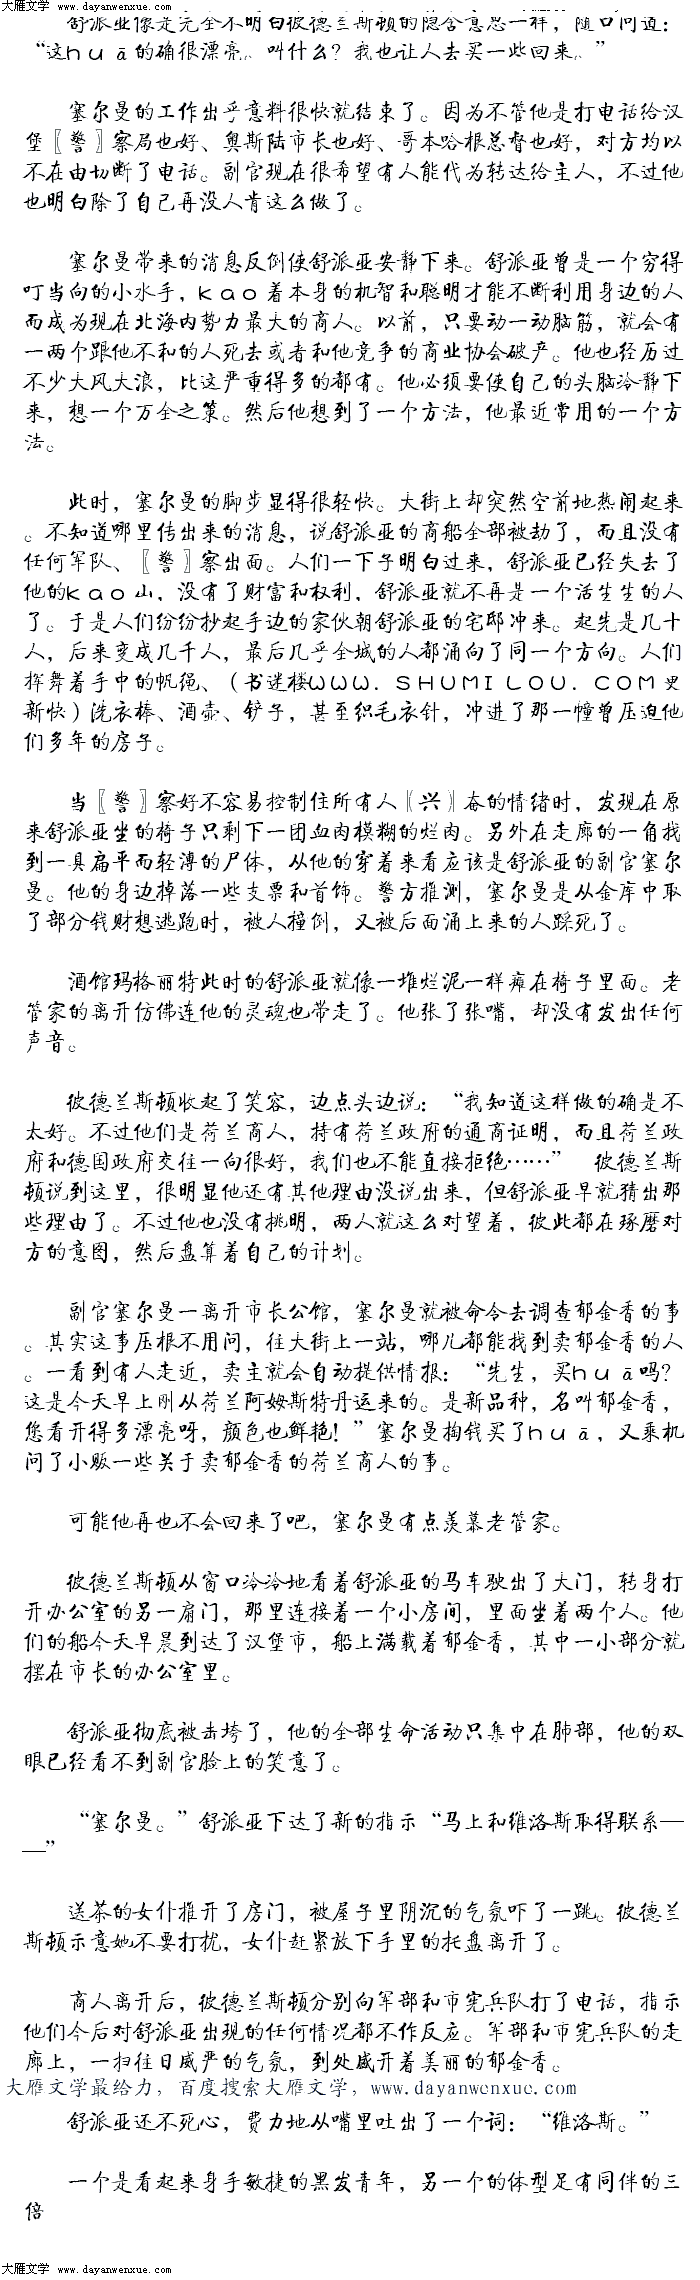 大雁文学 www.dayanwenxue.com
舒派亚像是完全不明白彼德兰斯顿的隐含意思一样，随口问道：
“这huā的确很漂亮。叫什么？我也让人去买一些回来。”
塞尔曼的工作出乎意料很快就结束了。因为不管他是打电话给汉
堡〖警〗察局也好、奥斯陆市长也好、哥本哈根总督也好，对方均以
不在由切断了电话。副官现在很希望有人能代为转达给主人，不过他
也明白除了自己再没人肯这么做了。
塞尔曼带来的消息反倒使舒派亚安静下来。舒派亚曾是一个穷得
叮当向的小水手，kao着本身的机智和聪明才能不断利用身边的人
而成为现在北海内势力最大的商人。以前，只要动一动脑筋，就会有
一两个跟他不和的人死去或者和他竞争的商业协会破产。他也经历过
不少大风大浪，比这严重得多的都有。他必须要使自己的头脑冷静下
来，想一个万全之策。然后他想到了一个方法，他最近常用的一个方
法。
此时，塞尔曼的脚步显得很轻快。大街上却突然空前地热闹起来
。不知道哪里传出来的消息，说舒派亚的商船全部被劫了，而且没有
任何军队、〖警〗察出面。人们一下子明白过来，舒派亚已经失去了
他的kao山，没有了财富和权利，舒派亚就不再是一个活生生的人
了。于是人们纷纷抄起手边的家伙朝舒派亚的宅邸冲来。起先是几十
人，后来变成几千人，最后几乎全城的人都涌向了同一个方向。人们
挥舞着手中的帆绳、（书迷楼WWW．SHUMILOU．COM更
新快）洗衣棒、酒壶、铲子，甚至织毛衣针，冲进了那一幢曾压迫他
们多年的房子。
当〖警〗察好不容易控制住所有人〖兴〗奋的情绪时，发现在原
来舒派亚坐的椅子只剩下一团血肉模糊的烂肉。另外在走廊的一角找
到一具扁平而轻薄的尸体，从他的穿着来看应该是舒派亚的副官塞尔
曼。他的身边掉落一些支票和首饰。警方推测，塞尔曼是从金库中取
了部分钱财想逃跑时，被人撞倒，又被后面涌上来的人踩死了。
酒馆玛格丽特此时的舒派亚就像一堆烂泥一样瘫在椅子里面。老
管家的离开仿佛连他的灵魂也带走了。他张了张嘴，却没有发出任何
声音。
彼德兰斯顿收起了笑容，边点头边说：“我知道这样做的确是不
太好。不过他们是荷兰商人，持有荷兰政府的通商证明，而且荷兰政
府和德国政府交往一向很好，我们也不能直接拒绝……” 彼德兰斯
顿说到这里，很明显他还有其他理由没说出来，但舒派亚早就猜出那
些理由了。不过他也没有挑明，两人就这么对望着，彼此都在琢磨对
方的意图，然后盘算着自己的计划。
副官塞尔曼一离开市长公馆，塞尔曼就被命令去调查郁金香的事
。其实这事压根不用问，往大街上一站，哪儿都能找到卖郁金香的人
。一看到有人走近，卖主就会自动提供情报：“先生，买huā吗？
这是今天早上刚从荷兰阿姆斯特丹运来的。是新品种，名叫郁金香，
您看开得多漂亮呀，颜色也鲜艳！”塞尔曼掏钱买了huā，又乘机
问了小贩一些关于卖郁金香的荷兰商人的事。
可能他再也不会回来了吧，塞尔曼有点羡慕老管家。
彼德兰斯顿从窗口冷冷地看着舒派亚的马车驶出了大门，转身打
开办公室的另一扇门，那里连接着一个小房间，里面坐着两个人。他
们的船今天早晨到达了汉堡市，船上满载着郁金香，其中一小部分就
摆在市长的办公室里。
舒派亚彻底被击垮了，他的全部生命活动只集中在肺部，他的双
眼已经看不到副官脸上的笑意了。
“塞尔曼。”舒派亚下达了新的指示“马上和维洛斯取得联系—
—”
送茶的女仆推开了房门，被屋子里阴沉的气氛吓了一跳。彼德兰
斯顿示意她不要打扰，女仆赶紧放下手里的托盘离开了。
商人离开后，彼德兰斯顿分别向军部和市宪兵队打了电话，指示
他们今后对舒派亚出现的任何情况都不作反应。军部和市宪兵队的走
廊上，一扫往日威严的气氛，到处盛开着美丽的郁金香。
大雁文学最给力，百度搜索大雁文学，www.dayanwenxue.com
舒派亚还不死心，费力地从嘴里吐出了一个词：“维洛斯。”
一个是看起来身手敏捷的黑发青年，另一个的体型足有同伴的三
倍
大雁文学 www.dayanwenxue.com